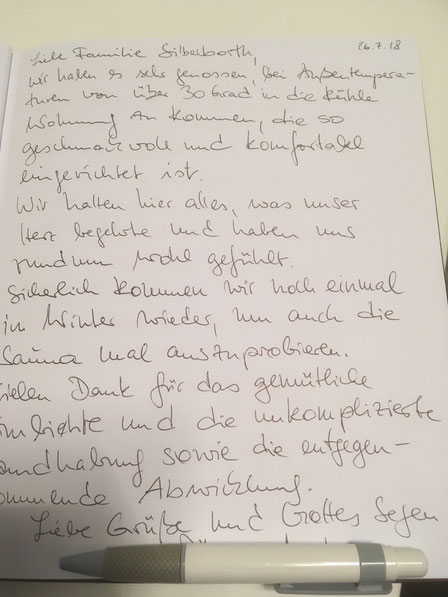 Liebe Familie Silberborth, 26.7.18
wir haben es sehr genossen, bei Außentempera-
turen von über 30 Grad in die kühle
Wohnung an kommen, die so
geschmackvoll und komfortabel
eingerichtet ist.
Wir hatten hier alles, was unser
Herz begehrte und haben uns
rundum wohl gefühlt.
Sicherlich kommen wir noch einmal
im Winter wieder, um auch die
Sauna mal auszuprobieren.
ielen Dank für das gemütliche
und die unkomplizierte
andhabung sowie die entgegen-
ommende Abwicklung.
Liebe Grüße und Gottes Segen